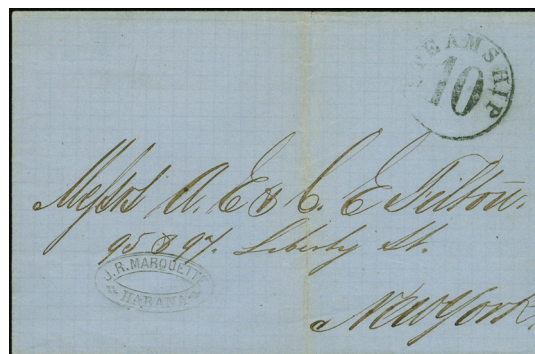 STEAMSHIP
10
Messrs A. E & C. E Tilton.
95 & 97. Liberty St.
J. R. MARQUETTE
HABANA
New York